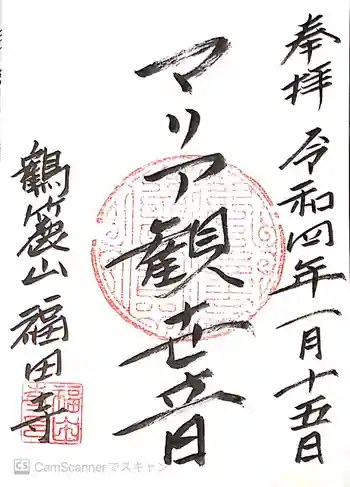 奉拝 令和四年一月十五日
マリア観世音
鶴麓山 福田寺
CS CamScannerでスキャン